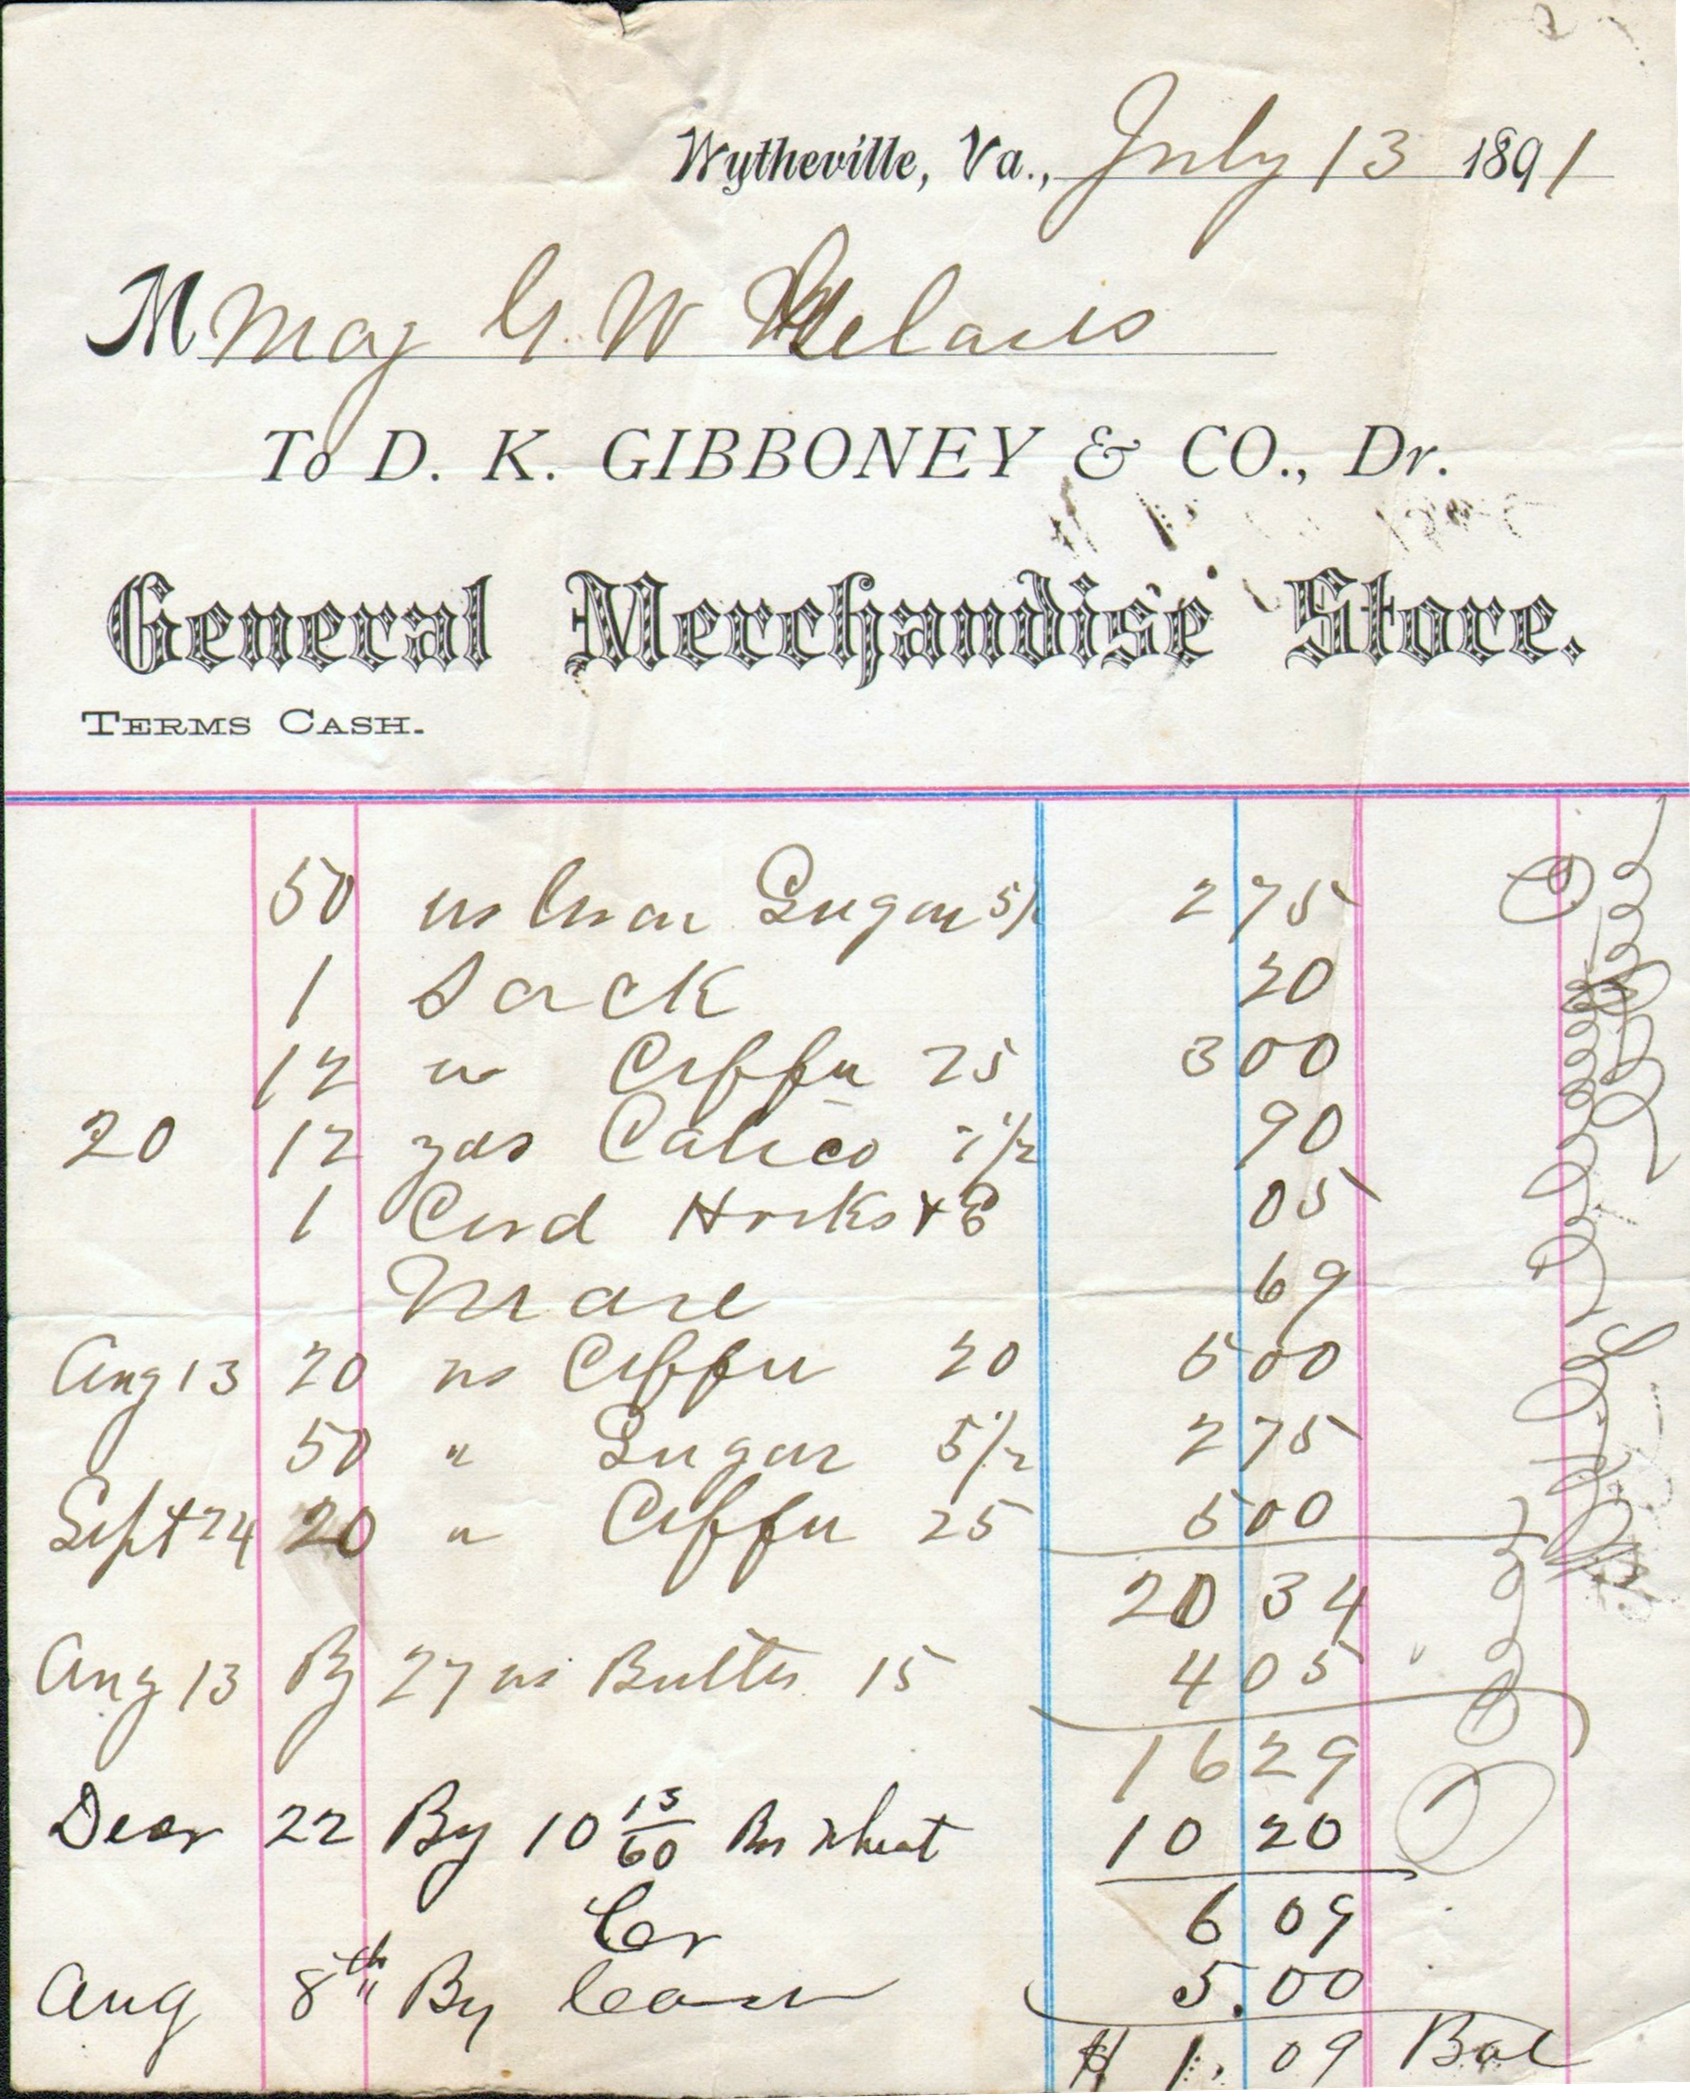 Wytheville, Va., July 13 1891
M Maj G. W
To D. K. GIBBONEY & CO., Dr.
General Merchandise Store.
TERMS CASH.
50 Sugar 5½ 2 75
1 Sack 20
12 " Coffee 25 3 00
20 12 yds Calico 7½ 90
1 Card Hooks + E 05
69
Aug 13 20 lbs Coffee 20 5 00
50 " Sugar 5½ 2 75
Sept 24 20 " Coffee 25 5 00
20 34
Aug 13 By 27 lbs Butter 15 4 05
16 29
22 By 10 15/60 Bus Wheat 10 20
6 09
Cr
Aug 8th " By Cash 5.00
$ 1.09 Bal